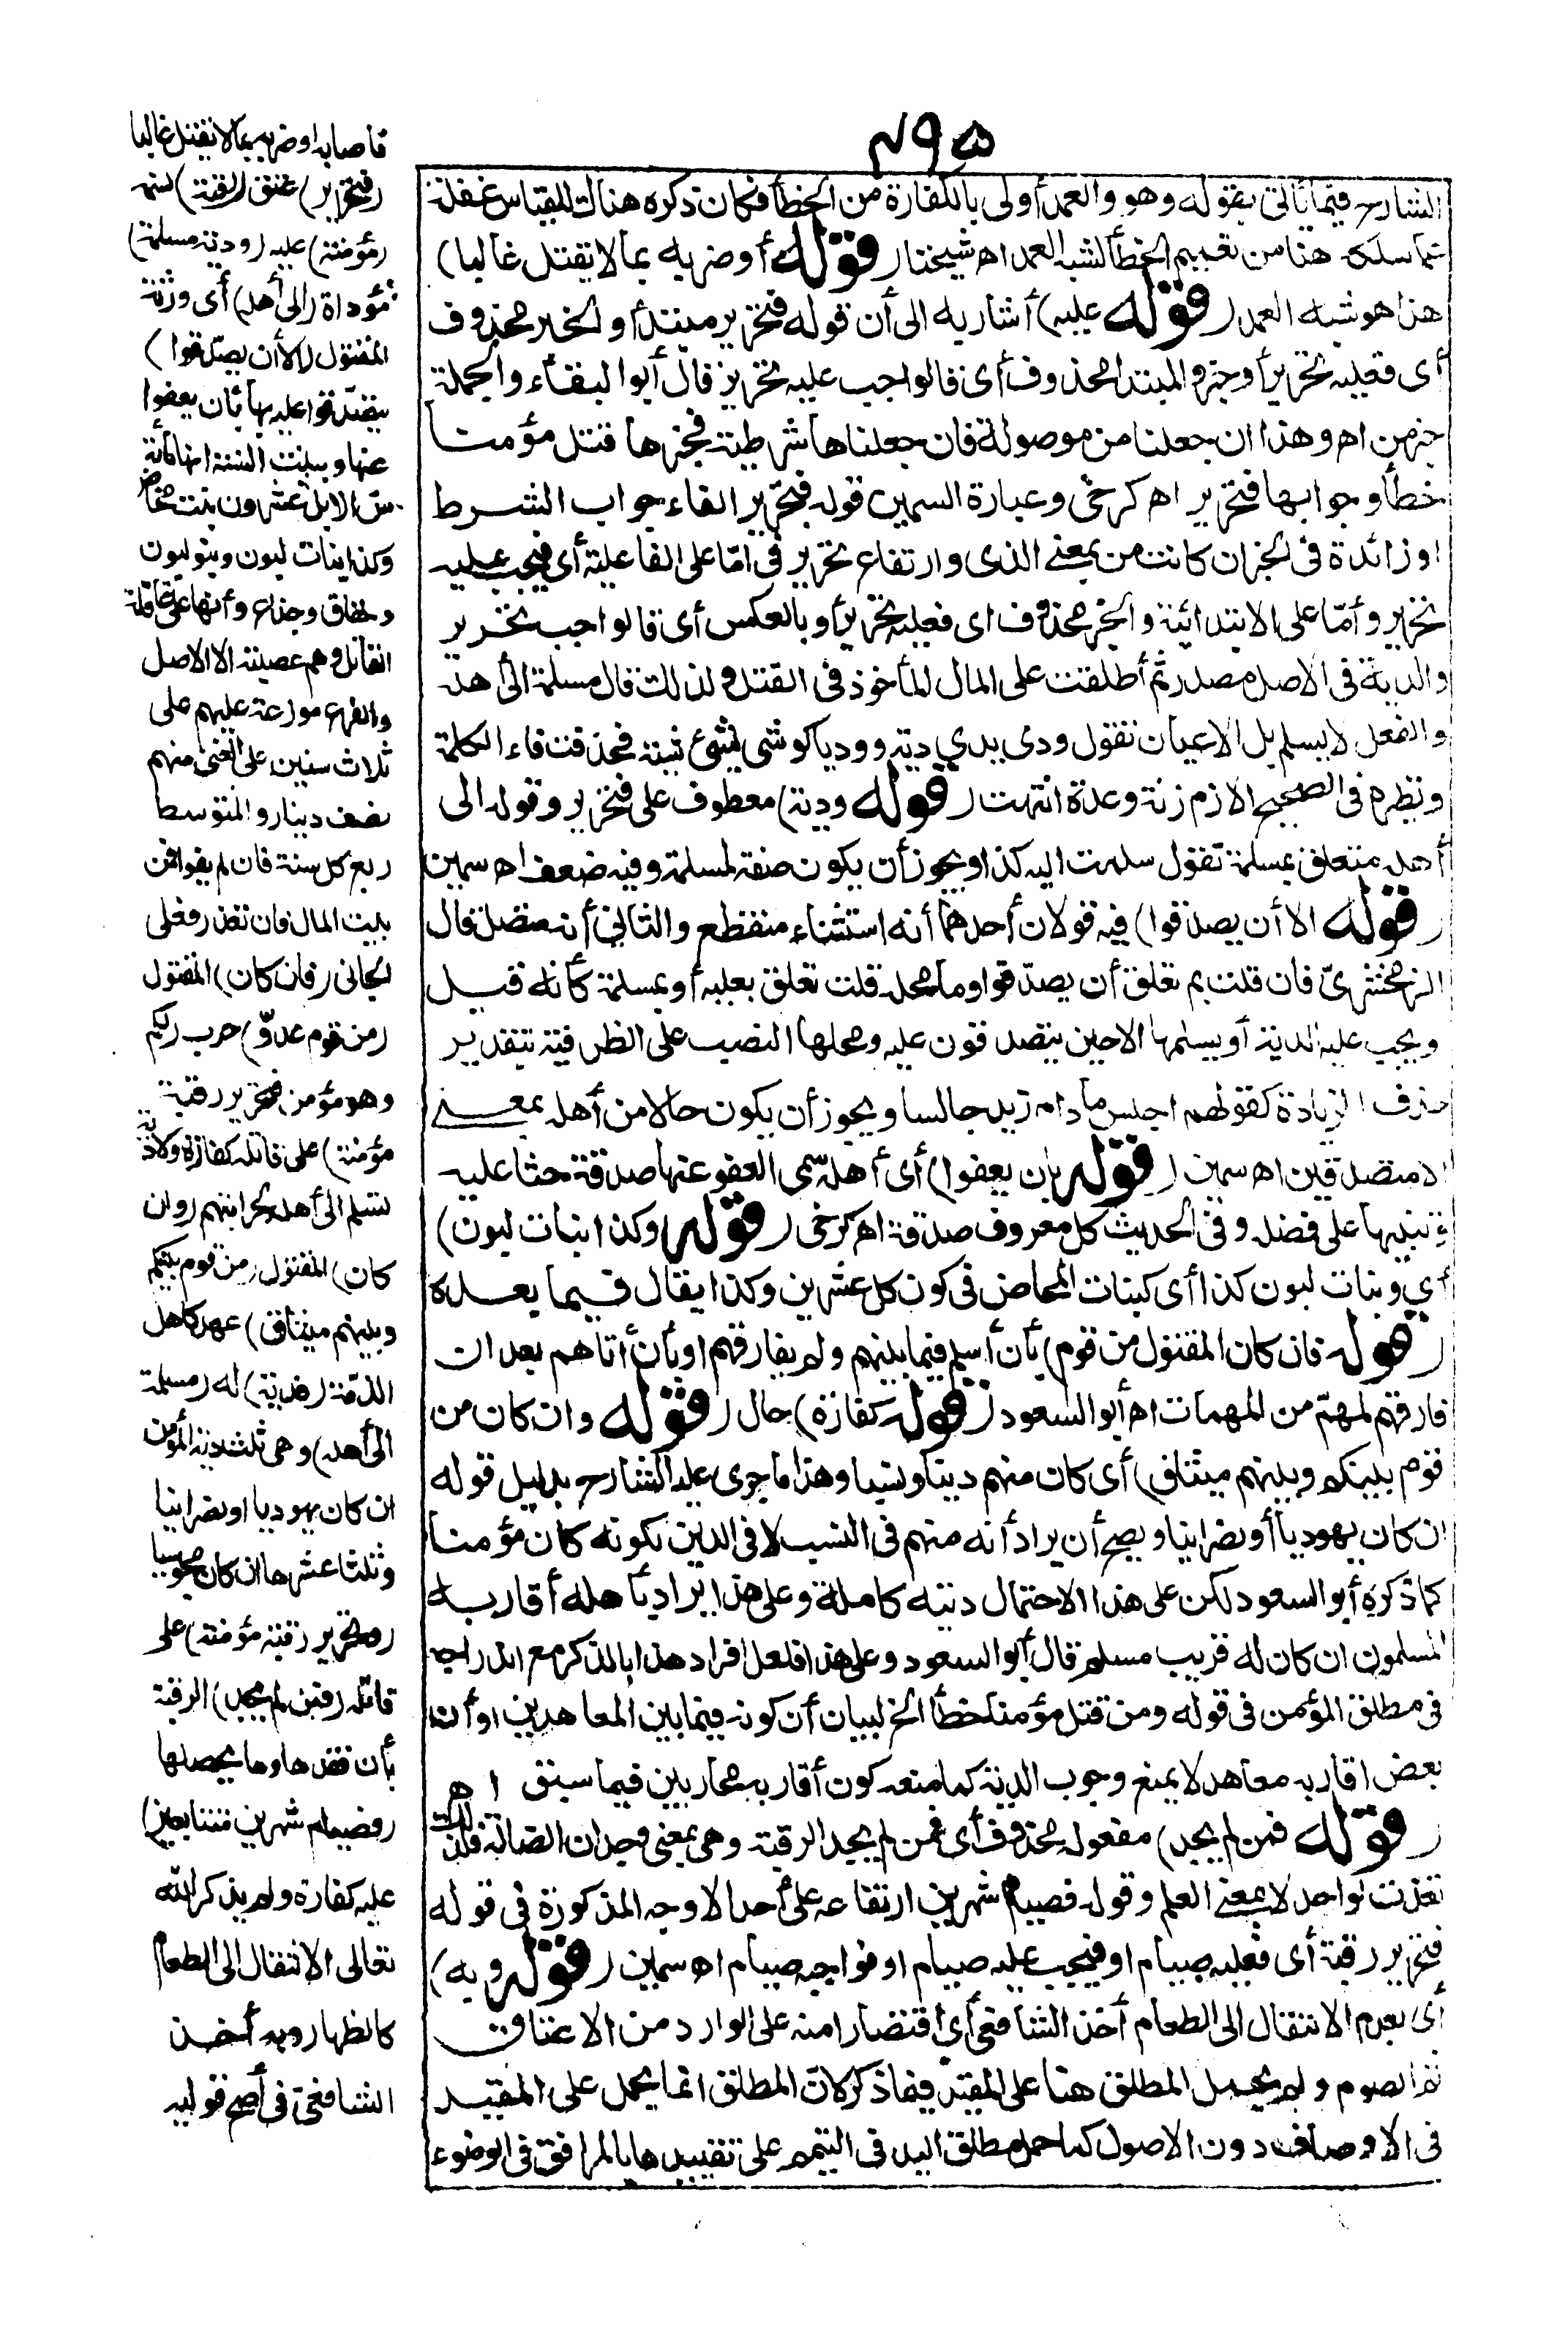 ٤٩٥
الشارح فيما يأتى بقوله وهو والعمد أولى بالكفارة من الخطأ فكان ذكره هنالك للقياس غفلة
عما سلكه هنا من تعميم الخطأ لشبه العمد اه شيخنا (قوله أو ضربه بما لا يقتل غالبا)
هذا هو شبه العمد (قوله عليه) أشار به الى أن قوله فتحرير مبتدأ والخبر محذوف
أى فعليه تحرير أو خبر والمبتدا محذوف أى فالواجب عليه تحرير قال أبو البقاء والجملة
خبر من اه وهذا ان جعلنا من موصولة فان جعلناها شرطية فخبرها قتل مؤمنا
خطأ وجوابها فتحرير اه كرخى وعبارة السمين قوله فتحرير الفاء جواب الشرط
او زائدة فى الخبر ان كانت من بمعنى الذى وارتفاع تحرير فى امّا على الفاعلية أى فيجب عليه
تحرير وأمّا على الابتدائية والخبر محذوف اى فعليه تحرير أو بالعكس أى فالواجب تحرير
والدية فى الاصل مصدر ثم أطلقت على المال المأخوذ فى القتل ولذلك قال مسلمة الى أهله
والفعل لا يسلم بل الاعيان تقول ودى يدي دية ووديا كوشى يشى شية فحذفت فاء الكلمة
ونظيره فى الصحيح اللازم زنة وعدة انتهت (قوله ودية) معطوف على فتحرير وقوله الى
أهله متعلق بمسلمة تقول سلمت اليه كذا ويجوز أن يكون صفة لمسلمة وفيه ضعف اه سمين
(قوله الا أن يصدقوا) فيه قولان أحدهما أنه استثناء منقطع والثانى أنه متصل قال
الزمخشرىّ فان قلت بم تعلق أن يصدّقوا وما محله قلت تعلق بعليه أو بمسلمة كأنه قيل
ويجب عليه الدية أو يسلمها الا حين يتصدقون عليه ومحلها النصب على الظرفية بتقدير
حذف الزيادة كقولهم اجلس ما دام زيد جالسا ويجوز أن يكون حالا من أهله بمعنى
الا متصدقين اه سمين (قوله بأن يعفوا) أى أهله سمى العفو عنها صدقة حثا عليه
وتنبيها على فضله وفى الحديث كل معروف صدقة اه كرخى (قوله وكذا بنات لبون)
أي وبنات لبون كذا أى كبنات المخاض فى كون كل عشرين وكذا يقال فيما بعده
(قوله فان كان المقتول من قوم) بأن أسلم فيما بينهم ولم يفارقهم او بأن أتاهم بعد ان
فارقهم لمهمّ من المهمات اه أبو السعود (قوله كفارة) حال (قوله وان كان من
قوم بينكم وبينهم ميثاق) أى كان منهم دينا ونسبا وهذا ما جرى عليه الشارح بدليل قوله
ان كان يهوديا أو نصرانيا ويصح أن يراد أنه منهم فى النسب لا فى الدين لكونه كان مؤمنا
كما ذكره أبو السعود لكن على هذا الاحتمال ديته كاملة وعلى هذا يراد بأهله أقاربه
المسلمون ان كان له قريب مسلم قال أبو السعود وعلى هذا فلعل افراد هذا بالذكر مع اندراجه
فى مطلق المؤمن فى قوله ومن قتل مؤمنا خطأ الخ لبيان أن كونه فيما بين المعاهدين او أن
بعض اقاربه معاهد لا يمنع وجوب الدية كما منعه كون أقاربه محاربين فيما سبق اه
(قوله فمن لم يجد) مفعوله محذوف أى فمن لم يجد الرقبة وهى بمعنى وجدان الضالة فلذلك
تعدت لواحد لا بمعنى العلم وقوله فصيام شهرين ارتفاعه على أحد الاوجه المذكورة فى قوله
فتحرير رقبة أى فعليه صيام او فيجب عليه صيام او فواجبه صيام اه سمين (قوله وبه)
أى بعدم الانتقال الى الطعام أخذ الشافعى أى اقتصارا منه على الوارد من الاعتاق
ثم الصوم ولم يحمل المطلق هنا على المقيد فيما ذكر لان المطلق انما يحمل على المقيد
فى الاوصاف دون الاصول كما حمل مطلق اليد فى التيمم على تقييدها بالمرافق فى الوضوء
فأصابه او ضربه بما لا يقتل غالبا
(فتحرير) عتق (رقبة) نسمة
(مؤمنة) عليه (ودية مسلمة)
مؤداة (الى أهله) أى ورثة
المقتول (الا أن يصدّقوا)
يتصدّقوا عليه بها بأن يعفوا
عنها وبينت السنة انها مائة
من الابل عشرون بنت مخاض
وكذا بنات لبون وبنو لبون
وحقاق وجذاع وأنها على عاقلة
القاتل وهم عصبته الا الاصل
والفرع موزعة عليهم على
ثلاث سنين على الغنى منهم
نصف دينار والمتوسط
ربع كل سنة فان لم يفوا فمن
بيت المال فان تعذر فعلى
الجانى (فان كان) المقتول
(من قوم عدوّ) حرب (لكم
وهو مؤمن فتحرير رقبة
مؤمنة) على قاتله كفارة ولا دية
تسلم الى أهله لحرابتهم (وان
كان) المقتول (من قوم بينكم
وبينهم ميثاق) عهد كأهل
الذمّة (فدية) له (مسلمة
الى أهله) وهى ثلث دية المؤمن
ان كان يهوديا او نصرانيا
وثلثا عشرها ان كان مجوسيا
(وتحرير رقبة مؤمنة) على
قاتله (فمن لم يجد) الرقبة
بأن فقدها وما يحصلها به
(فصيام شهرين متتابعين)
عليه كفارة ولم يذكر الله
تعالى الانتقال الى الطعام
كالظهار وبه أخذ
الشافعىّ فى أصح قوليه